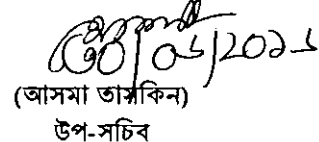 ৩০/০৬/২০১৬
(আসমা তামকিন)
উপ-সচিব